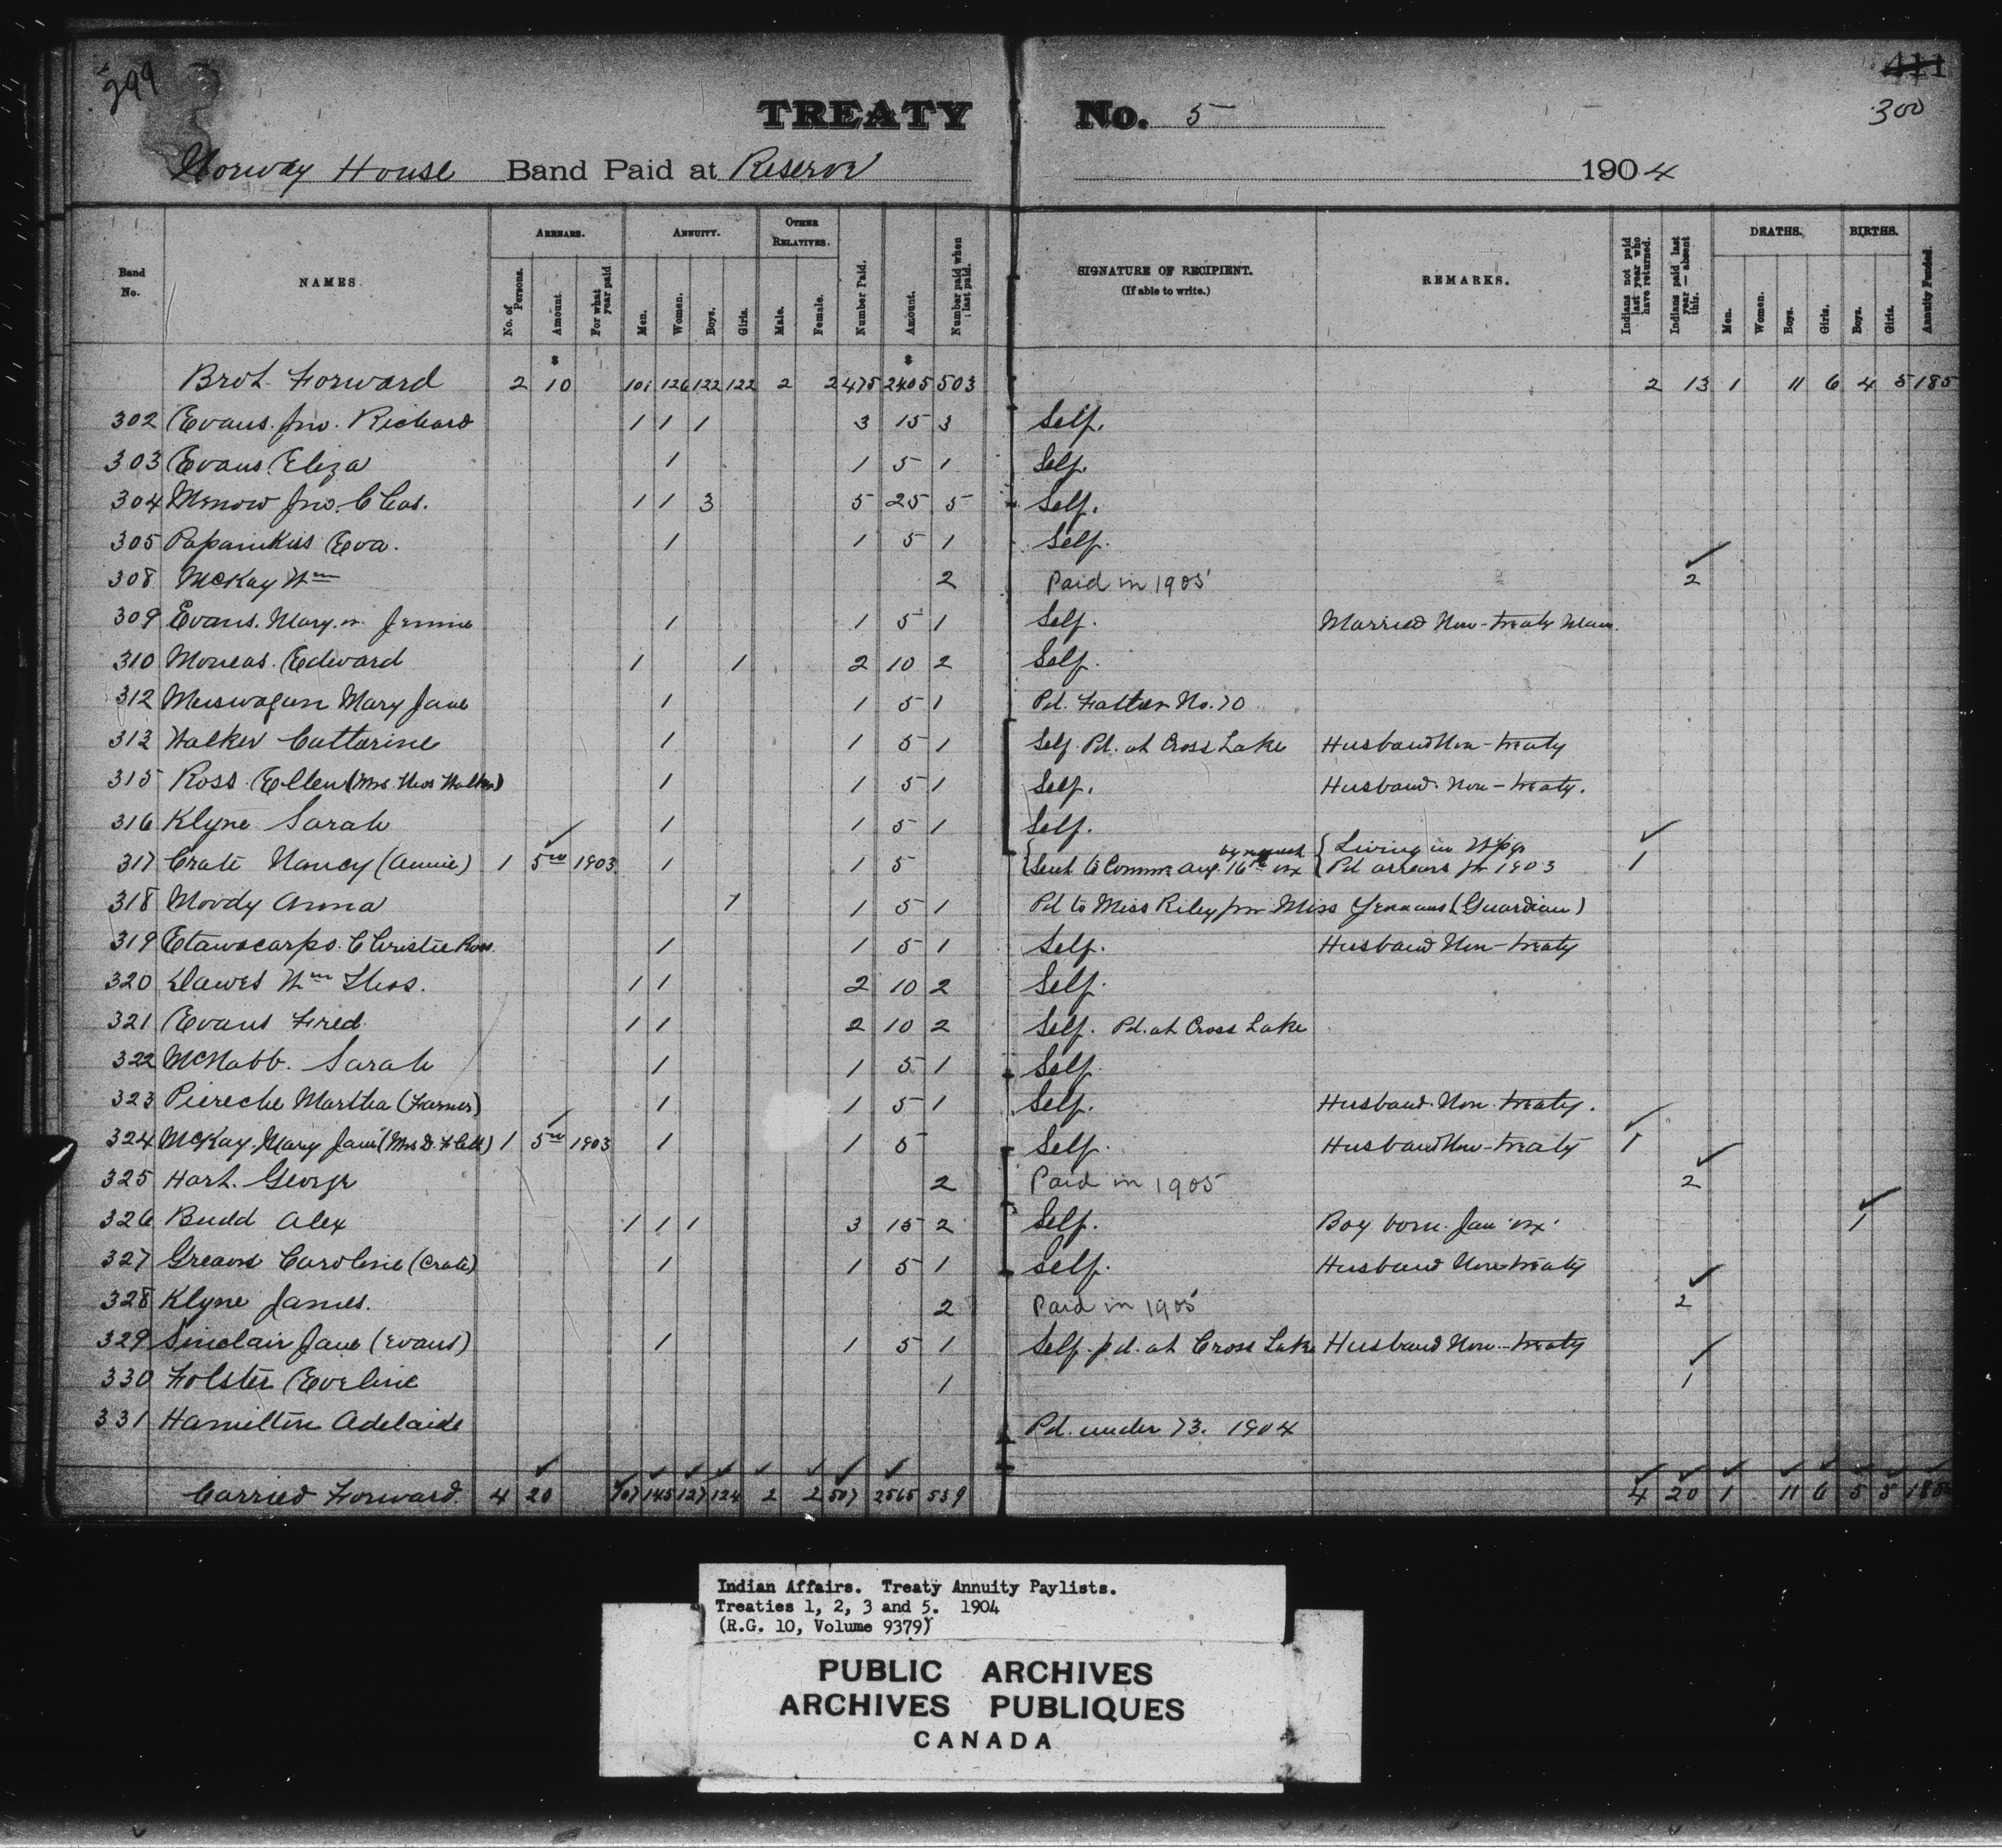 299
411
300
TREATY No. 5
Norway House Band Paid at Reserve 1904
Band No. NAMES. ARREARS. No. of Persons. Amount. For what year paid ANNUITY. Men. Women. Boys. Girls. OTHER RELATIVES. Male. Female. Number Paid. Amount. Number paid when last paid. SIGNATURE OF RECIPIENT. (If able to write.) REMARKS. Indians not paid last year who have returned. Indians paid last year — absent this. DEATHS. Men. Women. Boys. Girls. BIRTHS. Boys. Girls. Annuity Funded.
$ $
Brot. Forward 2 10 101 126 122 122 2 2 475 2405 503 2 13 1 11 6 4 5 185
302 Evans. Jno. Richard 1 1 1 3 15 3 Self.
303 Evans. Eliza 1 1 5 1 Self.
304 Menow Jno. Chas. 1 1 3 5 25 5 Self.
305 Papanikis Eva. 1 1 5 1 Self.
308 McKay Wm 2 Paid in 1905 2
309 Evans. Mary. or Jemima 1 1 5 1 Self. Married Non-treaty Man.
310 Moneas. Edward 1 1 2 10 2 Self.
312 Meiswagun Mary Jane 1 1 5 1 Pd. Father No. 70
313 Walker Catharine 1 1 5 1 Self. Pd. at Cross Lake Husband Non-treaty
315 Ross. Ellen (Mrs. Thos Walker) 1 1 5 1 Self. Husband. Non-treaty.
316 Klyne Sarah 1 1 5 1 Self.
317 Crate Nancy (Annie) 1 5 00 1903 1 1 5 Sent to Commr. Aug. 16th by request Living in Wpg. Pd arrears for 1903 1
318 Moody Anna 1 1 5 1 Pd to Miss Riley for Miss Yeomans (Guardian)
319 Etawacarpo. Christie Ross. 1 1 5 1 Self. Husband Non-treaty
320 Dawes Wm Thos. 1 1 2 10 2 Self.
321 Evans Fred. 1 1 2 10 2 Self. Pd. at Cross Lake
322 McNabb. Sarah 1 1 5 1 Self.
323 Piereche Martha (Farmer) 1 1 5 1 Self. Husband. Non-treaty.
324 McKay. Mary Jane (Mrs D. Flett) 1 5 00 1903 1 1 5 Self. Husband Non-treaty 1
325 Hart. George 2 Paid in 1905 2
326 Budd Alex 1 1 1 3 15 2 Self. Boy born. Jan 1
327 Greaves Caroline (Crate) 1 1 5 1 Self. Husband Non-treaty
328 Klyne James. 2 Paid in 1905 2
329 Sinclair Jane (Evans) 1 1 5 1 Self. pd. at Cross Lake Husband Non-treaty
330 Folster Eveline 1 1
331 Hamilton Adelaide Pd. under 73. 1904
Carried Forward. 4 20 107 145 127 124 2 2 507 2565 539 4 20 1 11 6 5 5 185
Indian Affairs. Treaty Annuity Paylists.
Treaties 1, 2, 3 and 5. 1904
(R.G. 10, Volume 9379)
PUBLIC ARCHIVES
ARCHIVES PUBLIQUES
CANADA